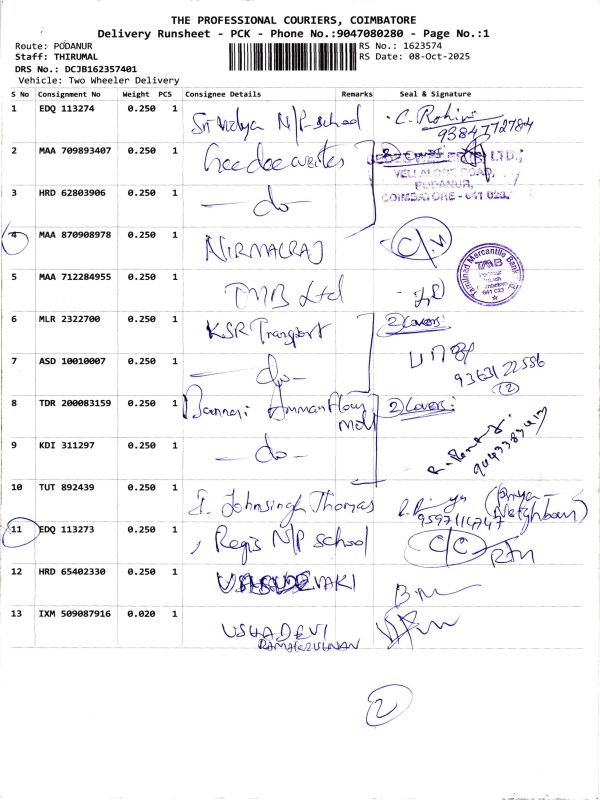 THE PROFESSIONAL COURIERS, COIMBATORE
Delivery Runsheet - PCK - Phone No.:9047080280 - Page No.:1
Route: PODANUR
RS No.: 1623574
Staff: THIRUMAL
RS Date: 08-Oct-2025
DRS No.: DCJB162357401
Vehicle: Two Wheeler Delivery
S No Consignment No Weight PCS Consignee Details Remarks Seal & Signature
1 EDQ 113274 0.250 1 Sri Vidya N/P-school C. Rohini
9384772784
2 MAA 709893407 0.250 1 2 Covers LTD.,
ROAD,
PODANUR,
3 HRD 62803906 0.250 1 — do —
COIMBATORE - 641 023.
4 MAA 870908978 0.250 1 NIRMALRAJ
5 MAA 712284955 0.250 1 TMB Ltd
Tamilnad Mercantile Bank
TMB
Podanur
Branch
Coimbatore
641 023
6 MLR 2322700 0.250 1 KSR Transport 2 Covers
7 ASD 10010007 0.250 1 — do —
9363122586
2
8 TDR 200083159 0.250 1 Bannari Amman Flour Mill 2 Covers
9 KDI 311297 0.250 1 — do —
10 TUT 892439 0.250 1 I. Johnsingh Thomas (Priya Neighbour)
9597114747
11 EDQ 113273 0.250 1 Regis N/P school C/C
12 HRD 65402330 0.250 1
13 IXM 509087916 0.020 1 USHADEVI
RAMAKRISHNAN
2